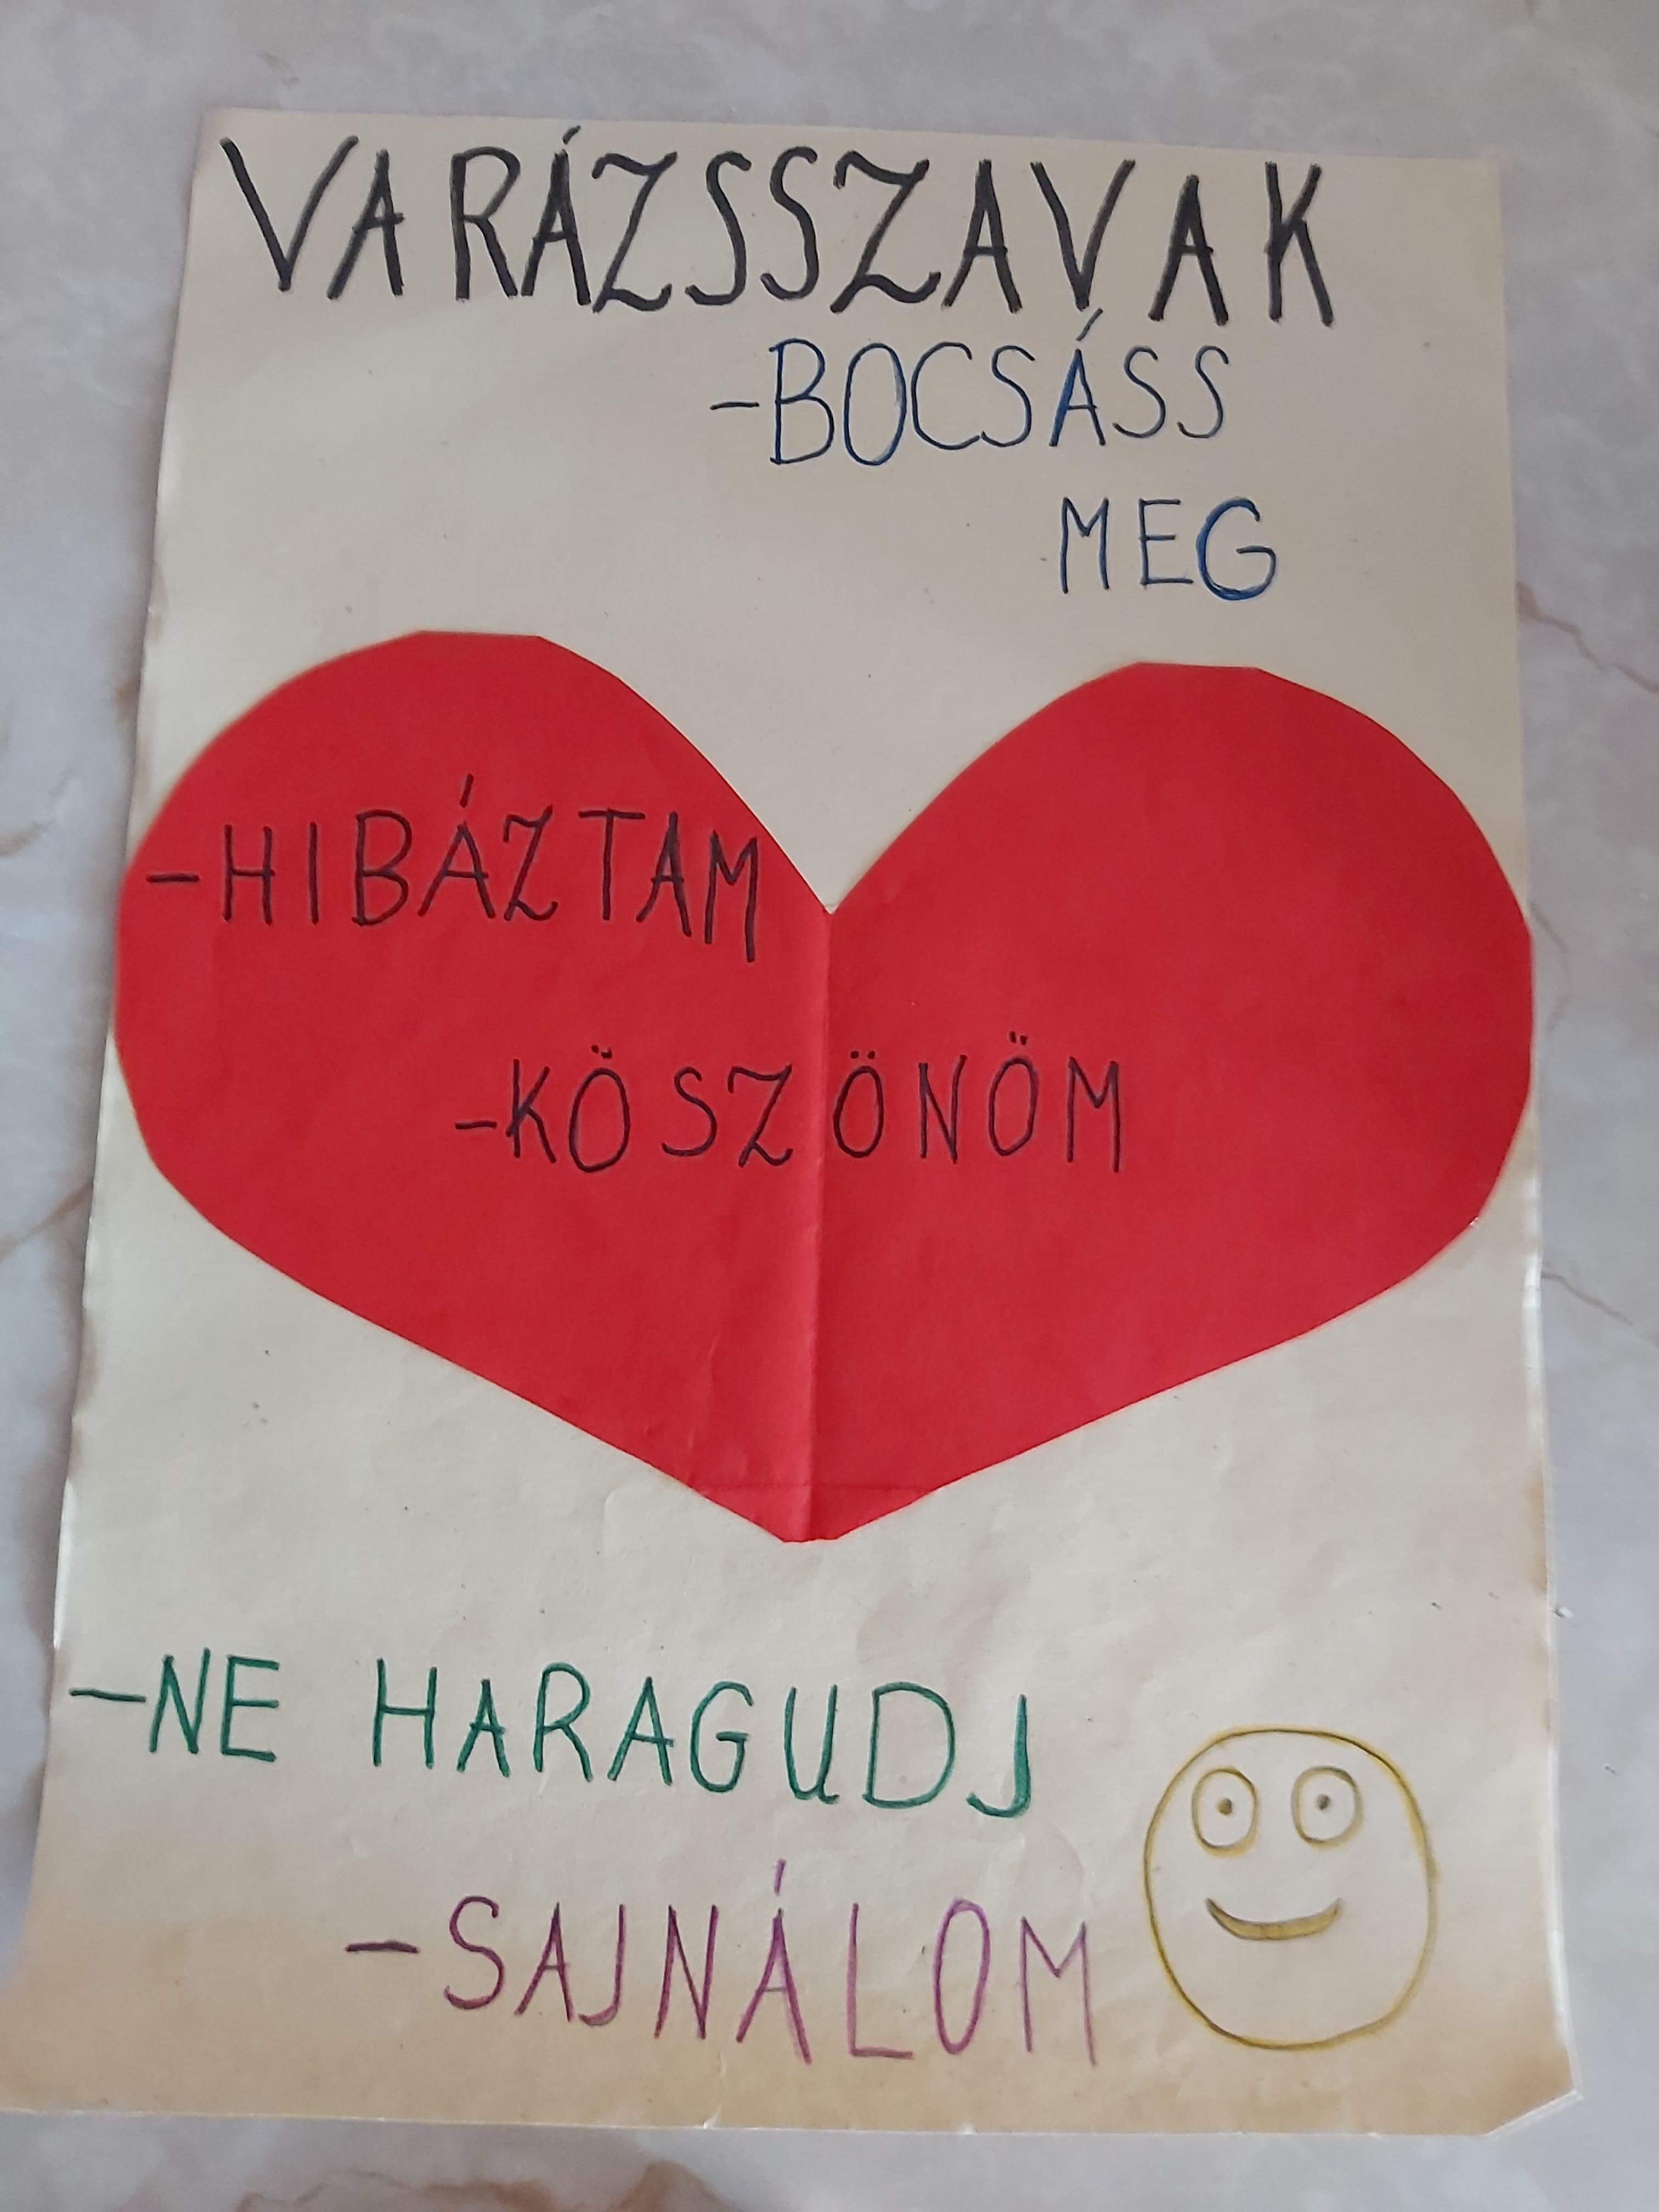 VARÁZSSZAVAK
-BOCSÁSS
MEG
-HIBÁZTAM
-KÖSZÖNÖM
-NE HARAGUDJ
-SAJNÁLOM